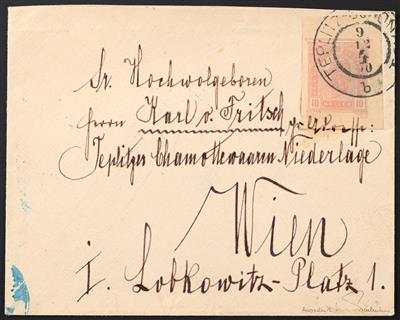 TEPLITZ-SCHÖNAU
9
12
10
b
10 10
Sr. Hochwolgeboren
Herrn Karl v. Fritsch
Teplitzer Chamottewaaren Niederlage
Wien
I. Lobkowitz-Platz 1.